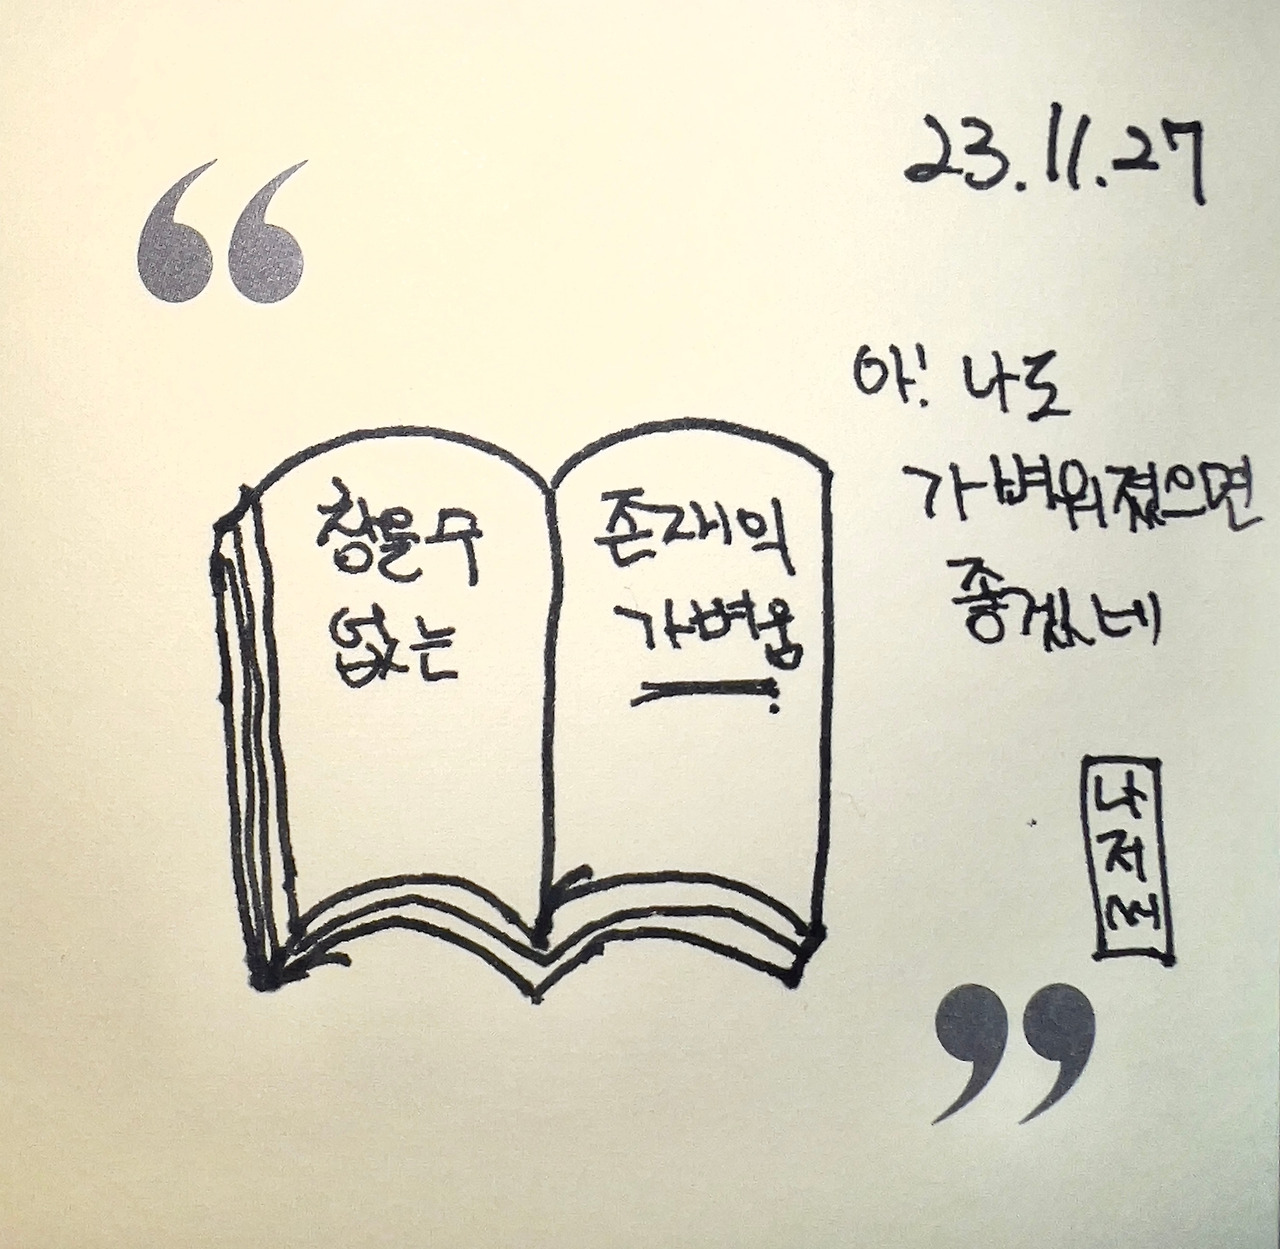 23.11.27
아! 나도
가벼워졌으면
좋겠네
참을수
없는
존재의
가벼움
나
저